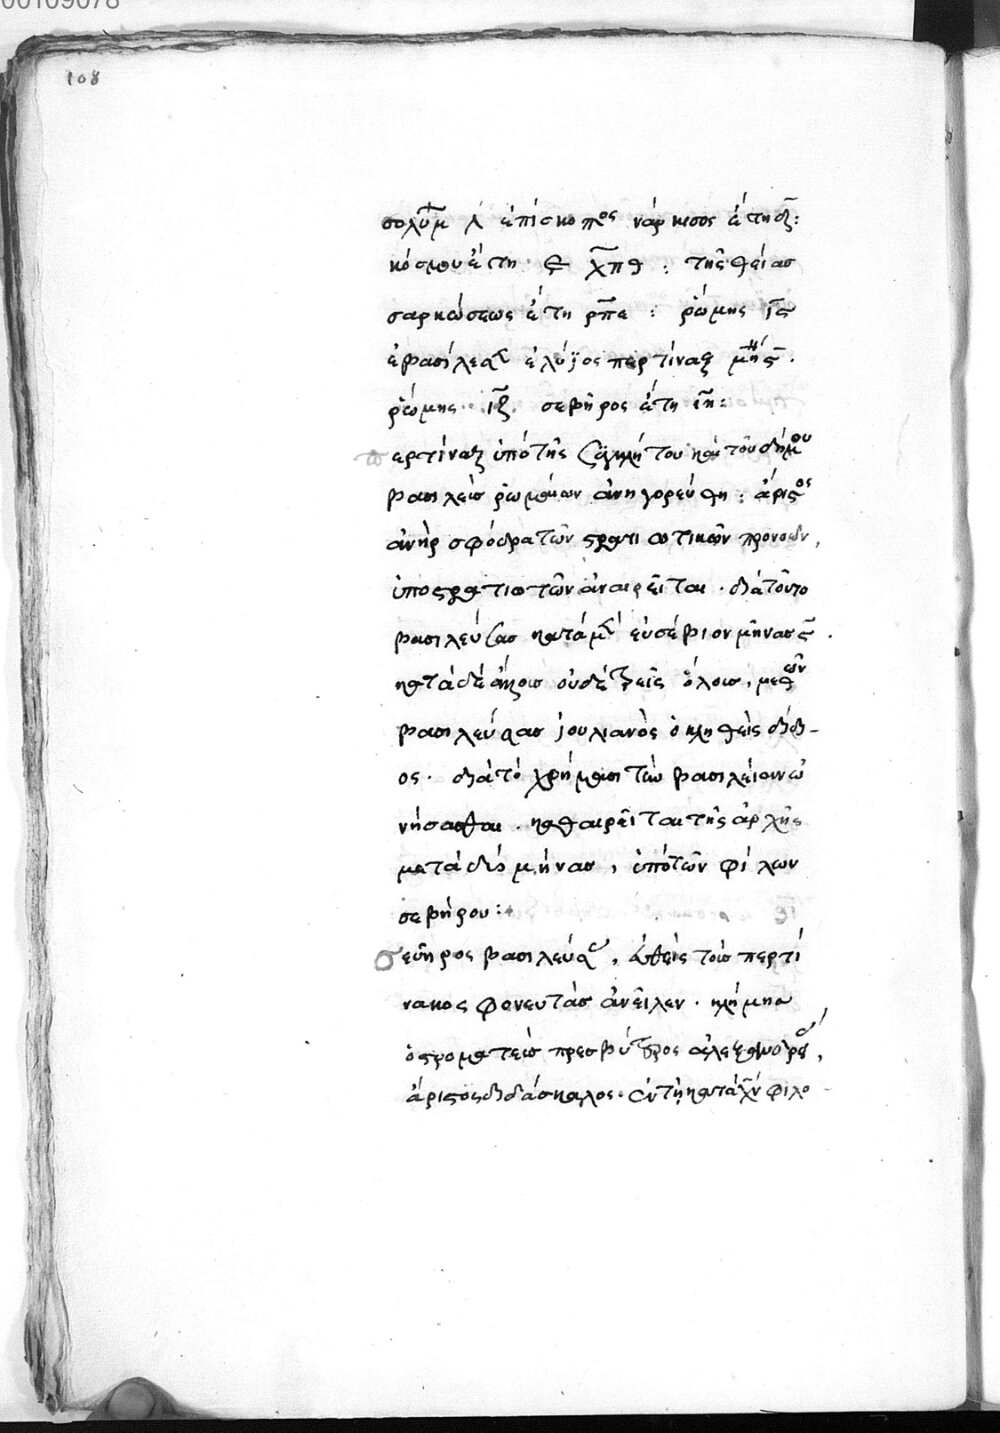 00109078
108
σολύμ λ ἐπίσκοπος νάρκισος ἔτη ιζ:
κόσμου ἔτη ͵ε χπθ : τῆς θείας
σαρκώσεως ἔτη ρπε : ῥώμης ις
ἐβασίλευσεν ἕλϊος περτίναξ μῆνας ς.
ῥώμης ιζ. σεβῆρος ἔτη ιη:
περτίναξ ὑπὸ τῆς συγκλήτου καὶ τοῦ δήμου
βασιλεὺς ῥωμαίων ἀνηγορεύθη : ἄριστος
ἀνὴρ σφόδρα τῶν στρατιωτικῶν προνοῶν,
ὑπὸ στρατιωτῶν ἀναιρεῖται. διὰ τοῦτο
βασιλεύσας κατὰ μὲν εὐσέβιον μῆνας ς.
κατὰ δὲ ἄλλους οὐδὲ τρεῖς ὅλους, μεθ' ὧν
βασιλεύσας ἰουλιανὸς ὁ κληθεὶς δίδι-
ος. διὰ τὸ χρήμασι τὴν βασιλείαν ὠ
νήσασθαι. καθαιρεῖται τῆς ἀρχῆς
μετὰ δύο μῆνας, ὑπὸ τῶν φίλων
σεβήρου:
σευῆρος βασιλεύσας, εὐθεὶς τοὺς περτί
νακος φονευτὰς ἀνεῖλεν. κλήμης
ὁ στρωματεὺς πρεσβύτερος ἀλεξανδρείας,
ἄριστος διδάσκαλος. ἐν τῇ κατὰ χν φιλο-